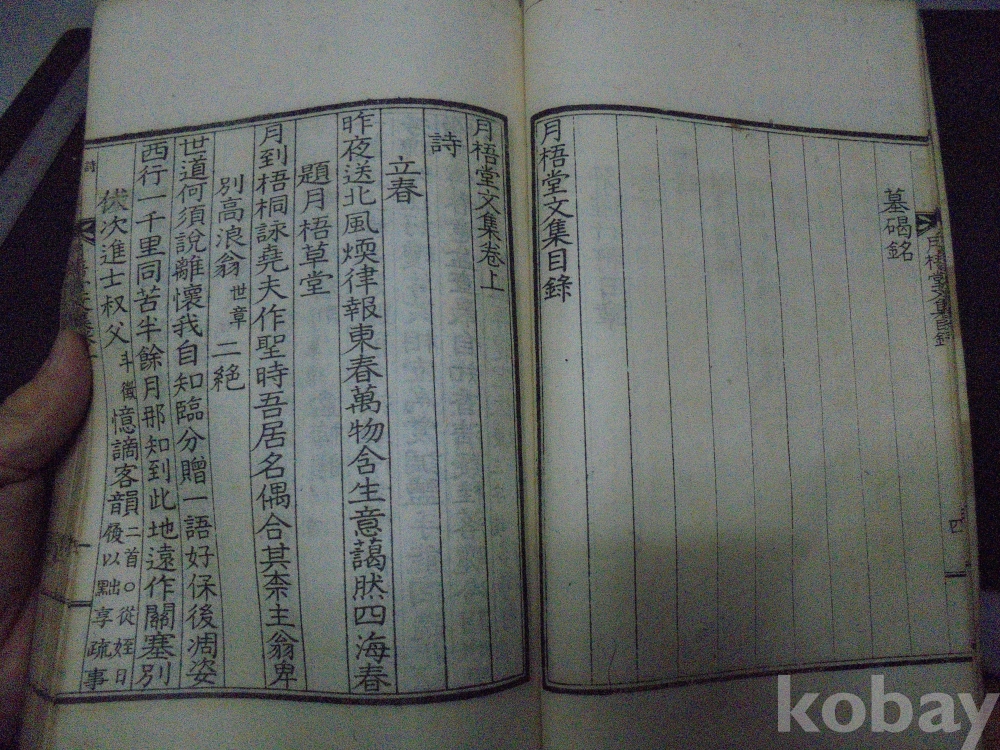 月梧堂文集目錄
四
墓碣銘
月梧堂文集目錄
月梧堂文集卷上
詩
立春
昨夜送北風煗律報東春萬物含生意藹然四海春
題月梧草堂
月到梧桐詠堯夫作聖時吾居名偶合其柰主翁卑
別高浪翁世章二絶
世道何須說離懷我自知臨分贈一語好保後凋姿
西行一千里同苦半餘月那知到此地遠作關塞別
伏次進士叔父斗徵憶謫客韻二首○從姪日後以出點享疏事
詩
一
kobay